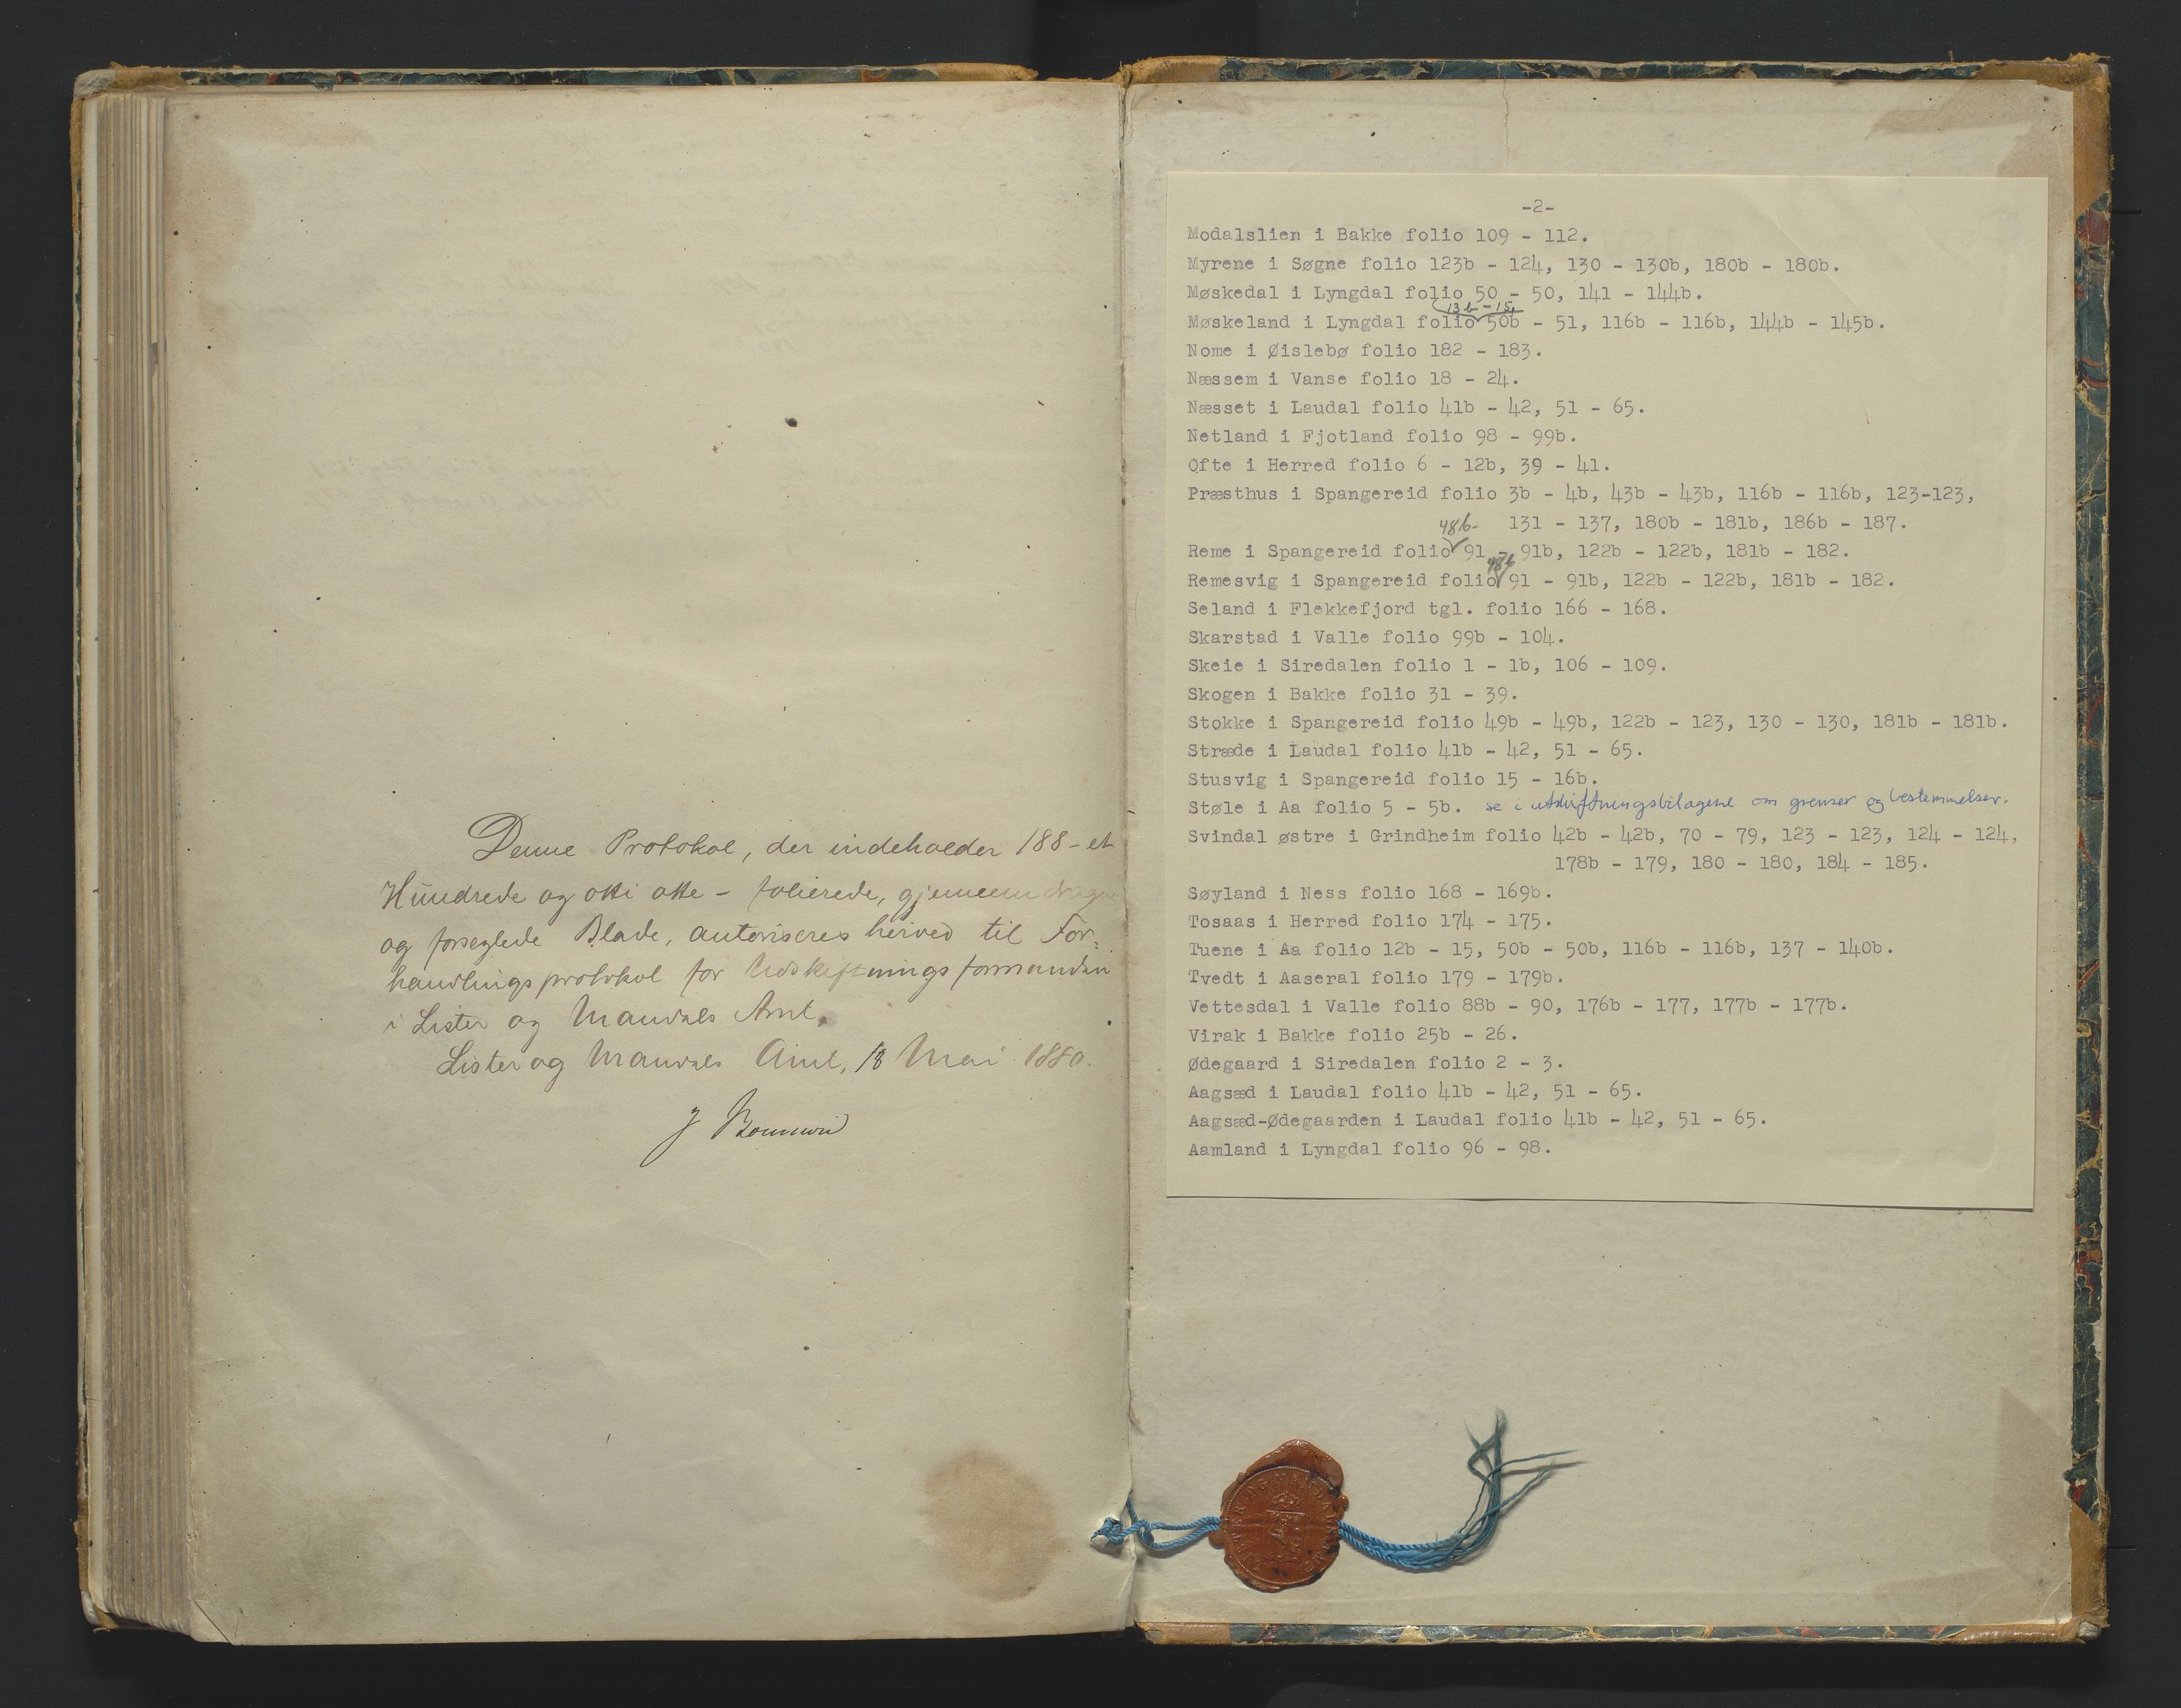 Denne Protokol, der indeholder 188 - et
Hundrede og otti otte - folierede, gjennemdragne
og forseglede Blade, autoriseres herved til For=
handlingsprotokol for Udskiftningsformanden
i Lister og Mandals Amt.
Lister og Mandals Amt, 18 Mai 1880.
J
-2-
Modalslien i Bakke folio 109 - 112.
Myrene i Søgne folio 123b - 124, 130 - 130b, 180b - 180b.
Møskedal i Lyngdal folio 50 - 50, 141 - 144b.
13b - 15,
Møskeland i Lyngdal folio 50b - 51, 116b - 116b, 144b - 145b.
Nome i Øislebø folio 182 - 183.
Næssem i Vanse folio 18 - 24.
Næsset i Laudal folio 41b - 42, 51 - 65.
Netland i Fjotland folio 98 - 99b.
Ofte i Herred folio 6 - 12b, 39 - 41.
Præsthus i Spangereid folio 3b - 4b, 43b - 43b, 116b - 116b, 123-123,
131 - 137, 180b - 181b, 186b - 187.
48b-
Reme i Spangereid folio 91 - 91b, 122b - 122b, 181b - 182.
48b
Remesvig i Spangereid folio 91 - 91b, 122b - 122b, 181b - 182.
Seland i Flekkefjord tgl. folio 166 - 168.
Skarstad i Valle folio 99b - 104.
Skeie i Siredalen folio 1 - 1b, 106 - 109.
Skogen i Bakke folio 31 - 39.
Stokke i Spangereid folio 49b - 49b, 122b - 123, 130 - 130, 181b - 181b.
Stræde i Laudal folio 41b - 42, 51 - 65.
Stusvig i Spangereid folio 15 - 16b.
Støle i Aa folio 5 - 5b. se i utskiftningsbilagene om grenser og bestemmelser.
Svindal østre i Grindheim folio 42b - 42b, 70 - 79, 123 - 123, 124 - 124,
178b - 179, 180 - 180, 184 - 185.
Søyland i Ness folio 168 - 169b.
Tosaas i Herred folio 174 - 175.
Tuene i Aa folio 12b - 15, 50b - 50b, 116b - 116b, 137 - 140b.
Tvedt i Aaseral folio 179 - 179b.
Vettesdal i Valle folio 88b - 90, 176b - 177, 177b - 177b.
Virak i Bakke folio 25b - 26.
Ødegaard i Siredalen folio 2 - 3.
Aagsæd i Laudal folio 41b - 42, 51 - 65.
Aagsæd-Ødegaarden i Laudal folio 41b - 42, 51 - 65.
Aamland i Lyngdal folio 96 - 98.